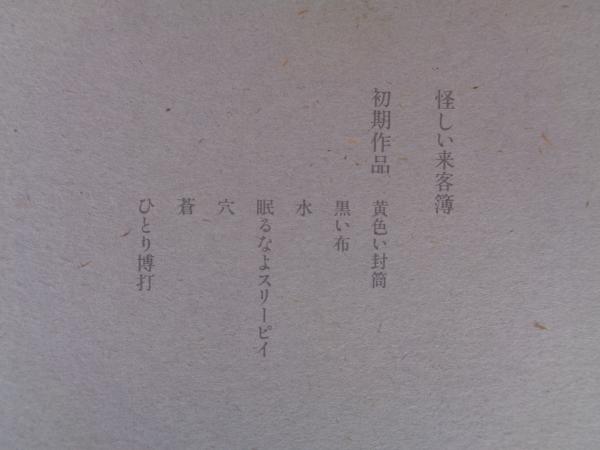 怪しい来客簿
初期作品 黄色い封筒
黒い布
水
眠るなよスリーピイ
穴
蒼
ひとり博打